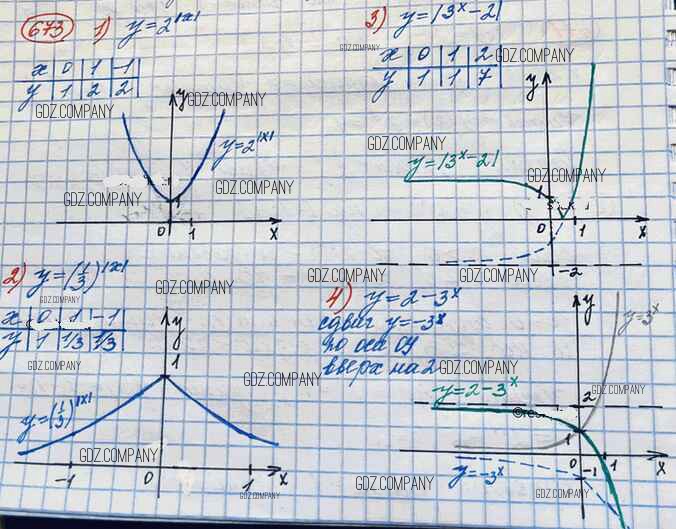 673 1) y=2^|x|
x | 0 | 1 | -1
y | 1 | 2 | 2
GDZ.COMPANY
GDZ.COMPANY
y
y=2^|x|
GDZ.COMPANY
GDZ.COMPANY
1
0 1 x
3) y=|3^x-2|
GDZ.COMPANY
GDZ.COMPANY
x | 0 | 1 | 2
y | 1 | 1 | 7
GDZ.COMPANY
y
GDZ.COMPANY
y=|3^x-2|
GDZ.COMPANY
GDZ.COMPANY
1
0 1 x
-2
2) y=(1/3)^|x|
GDZ.COMPANY
GDZ.COMPANY
x | 0 | 1 | -1
y | 1 | 1/3 | 1/3
GDZ.COMPANY
GDZ.COMPANY
y
1
GDZ.COMPANY
y=(1/3)^|x|
GDZ.COMPANY
-1 0 1 x
GDZ.COMPANY
GDZ.COMPANY
GDZ.COMPANY
4) y=2-3^x
сдвиг y=-3^x
по оси OY
вверх на 2
GDZ.COMPANY
y
y=3^x
y=2-3^x
GDZ.COMPANY
2
1
0 1 x
-1
y=-3^x
GDZ.COMPANY
GDZ.COMPANY